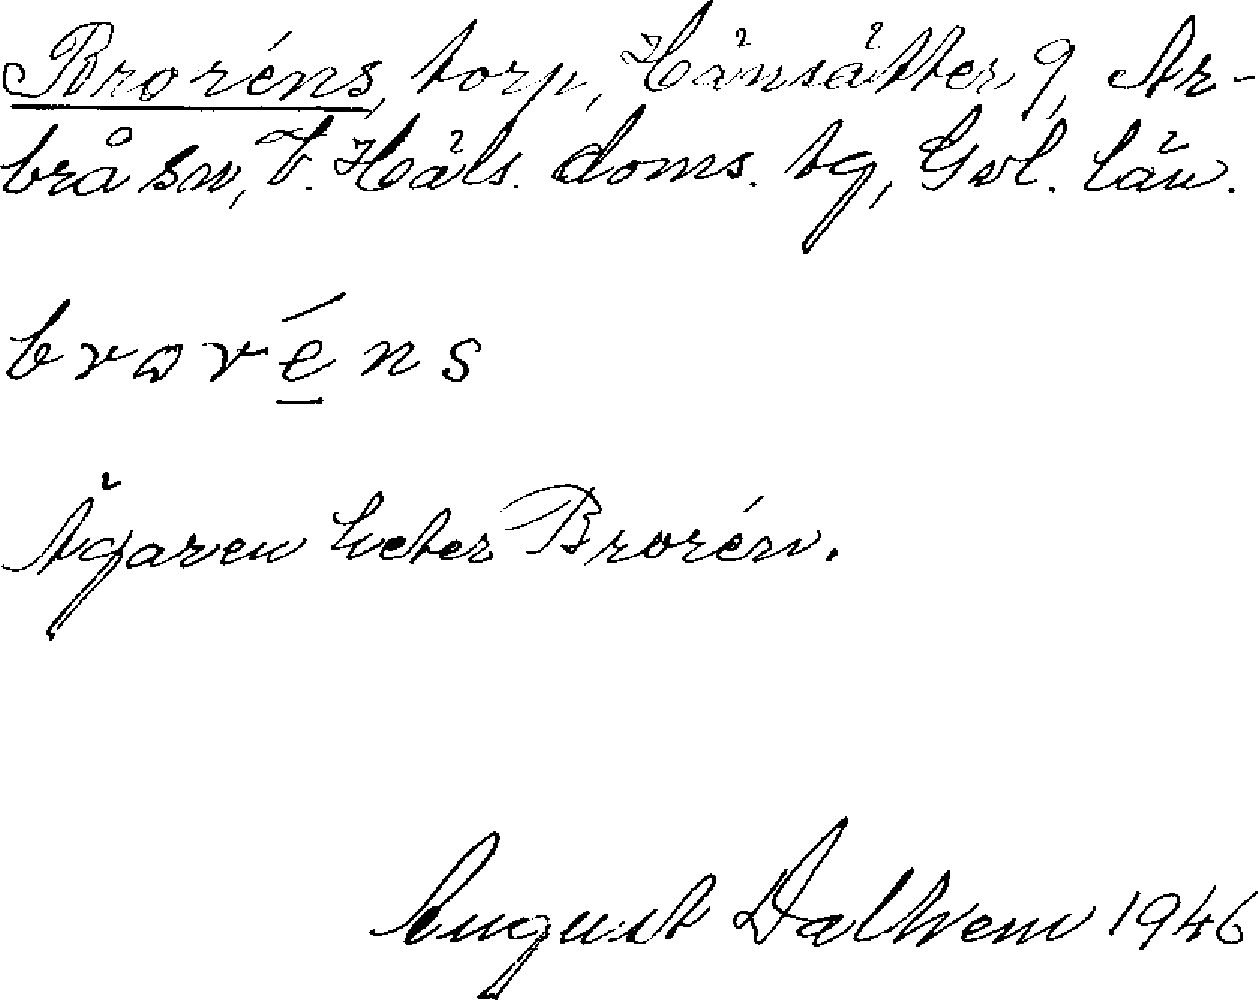 Broréns, torp, Hänsätter 9, Ar-
brå sn, V. Häls. doms. tg, Gvl. län.
broréns
Ägaren heter Brorén.
August Dalhem 1946